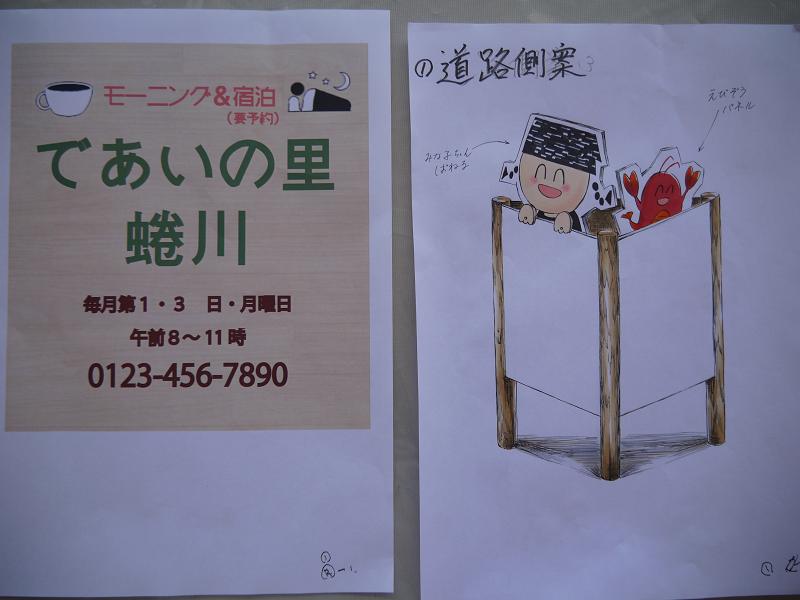 モーニング&宿泊
(要予約)
であいの里
蜷川
毎月第1・3 日・月曜日
午前8～11時
0123-456-7890
①道路側案
えびぞう
パネル
みな子ちゃん
ぱねる
①